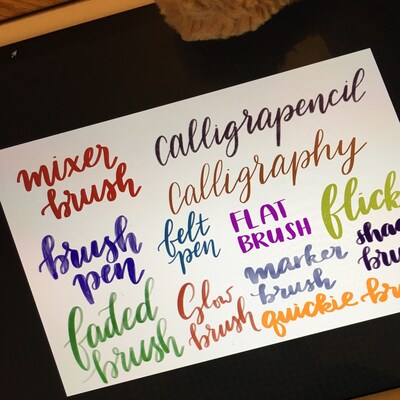 mixer
brush
calligrapencil
calligraphy
brush
pen
felt
pen
FLAT
BRUSH
flick
faded
brush
Glow
brush
marker
brush
quickie